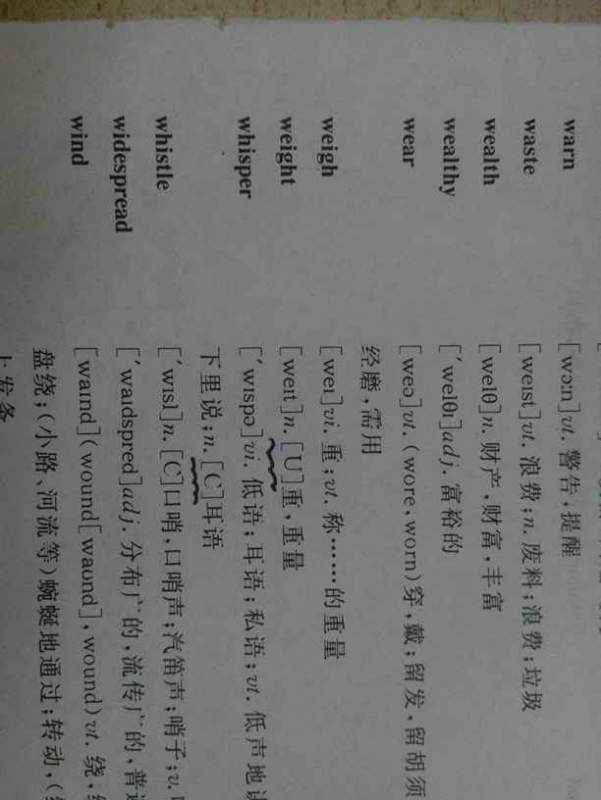 warn [wɔːn]vt. 警告,提醒
waste [weɪst]vt. 浪费;n. 废料;浪费;垃圾
wealth [welθ]n. 财产,财富,丰富
wealthy ['welθɪ]adj. 富裕的
wear [weə]vt. (wore,worn)穿,戴;留发,留胡须
经磨,需用
weigh [weɪ]vi. 重;vt. 称……的重量
weight [weɪt]n. [U]重,重量
whisper ['wɪspə]vi. 低语;耳语;私语;vt. 低声地
下里说;n. [C]耳语
whistle ['wɪsl]n. [C]口哨,口哨声;汽笛声;哨子;v.
widespread ['waɪdspred]adj. 分布广的,流传广的,普
wind [waɪnd](wound[waʊnd],wound)vt. 绕,
盘绕;(小路、河流等)蜿蜒地通过;转动,(
上发条